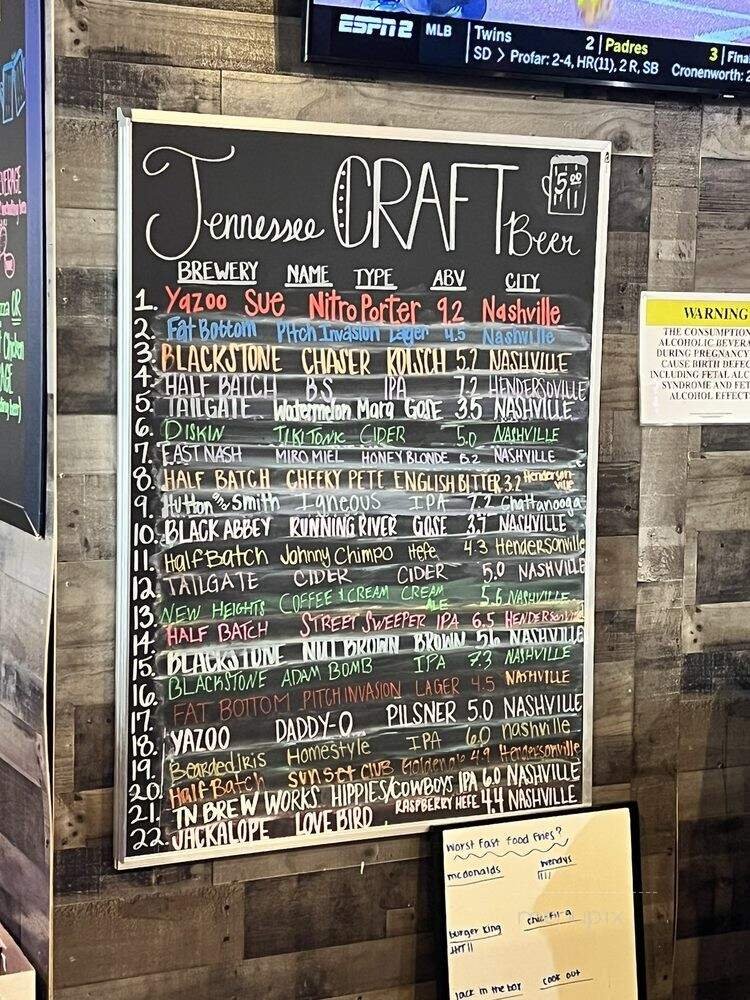 ESPN2 MLB Twins 2 Padres 3 Final
SD > Profar: 2-4, HR(11), 2 R, SB Cronenworth: 2
Tennessee CRAFT Beer
5.00
BREWERY NAME TYPE ABV CITY
1. Yazoo Sue Nitro Porter 9.2 Nashville
2. Fat Bottom Pitch Invasion Lager 4.5 Nashville
3. BLACKSTONE CHASER KOLSCH 5.2 NASHVILLE
4. HALF BATCH B.S. IPA 7.2 HENDERSOVILLE
5. TAILGATE Watermelon Marg GOSE 3.5 NASHVILLE
6. DISKIN TIKI TONIC CIDER 5.0 NASHVILLE
7. EAST NASH MIRO MIEL HONEY BLONDE 6.2 NASHVILLE
8. HALF BATCH CHEEKY PETE ENGLISH BITTER 3.2 Hendersonville
9. Hutton and Smith Igneous IPA 7.2 Chattanooga
10. BLACK ABBEY RUNNING RIVER GOSE 3.7 NASHVILLE
11. Half Batch Johnny Chimpo Hefe 4.3 Hendersonville
12. TAILGATE CIDER CIDER 5.0 NASHVILLE
13. NEW HEIGHTS COFFEE & CREAM CREAM ALE 5.6 NASHVILLE
14. HALF BATCH STREET SWEEPER IPA 6.5 HENDERSONVILLE
15. BLACKSTONE NUT BROWN BROWN 5.6 NASHVILLE
16. BLACKSTONE ADAM BOMB IPA 7.3 NASHVILLE
17. FAT BOTTOM PITCH INVASION LAGER 4.5 NASHVILLE
18. YAZOO DADDY-O PILSNER 5.0 NASHVILLE
19. Bearded Iris Homestyle IPA 6.0 nashville
20. Half Batch sunset club Goldenale 4.9 Hendersonville
21. TN BREW WORKS HIPPIES/COWBOYS IPA 6.0 NASHVILLE
22. JACKALOPE LOVE BIRD RASPBERRY HEFE 4.4 NASHVILLE
WARNING
THE CONSUMPTION
ALCOHOLIC
DURING PREGNANCY
CAUSE BIRTH
INCLUDING FETAL
SYNDROME AND
ALCOHOL
worst fast food fries?
mcdonalds wendys
burger king chic-fil-a
Jack in the box cook out